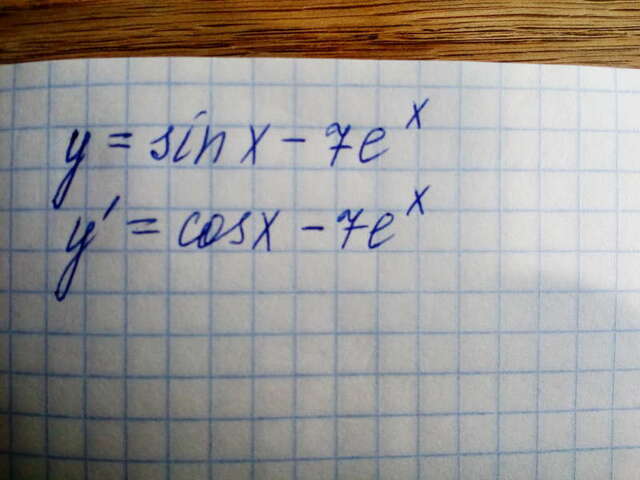 y = sin x - 7e^x
y' = cos x - 7e^x